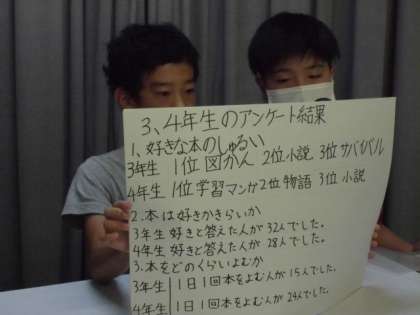 3、4年生のアンケート結果
1、好きな本のしゅるい
3年生 1位 図かん 2位 小説 3位 サバイバル
4年生 1位 学習マンガ 2位 物語 3位 小説
2.本は好きかきらいか
3年生 好きと答えた人が32人でした。
4年生 好きと答えた人が28人でした。
3.本をどのくらいよむか
3年生 1日1回本をよむ人が15人でした。
4年生 1日1回本をよむ人が24人でした。